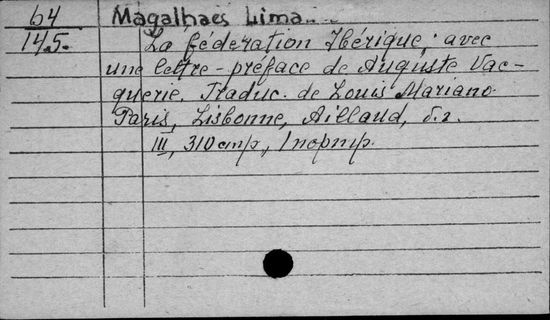 64
145.
Magalhaes Lima
La féderation Ibérique; avec
une lettre-préface de Auguste Vac-
querie. Traduc. de Louis Mariano.
Paris, Lisbonne, Aillaud, s.a.
III, 310 cmp., 1 nopmp.